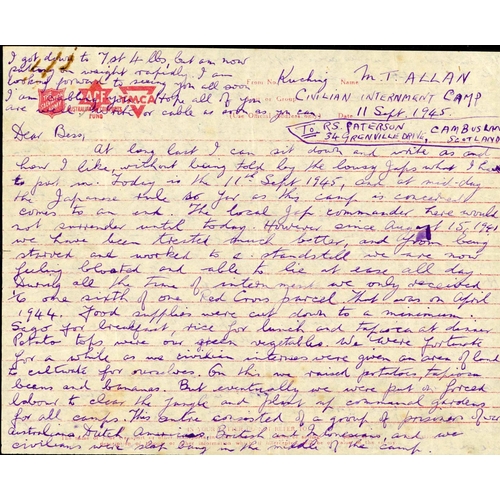 I got down to 7 st 4 lbs, but am now
putting on weight rapidly. I am
looking forward to seeing you all soon
I am hope all of you
are cable as soon as you can
ACF
YMCA
FUND
From No. Kuching Name M. T. ALLAN
Group CIVILIAN INTERNMENT CAMP
11 Sept. 1945.
To R.S. PATERSON
34 GRENVILLE DRIVE, CAMBUSLANG
SCOTLAND
Dear Bess,
At long last I can sit down and write as and
how I like, without being told by the lousy Japs what I have
to put in. Today is the 11th Sept 1945, and at mid-day
the Japanese rule so far as this camp is concerned
comes to an end. The local Jap commander here would
not surrender until today. However since August 15, 1945
we have been treated much better, and from being
starved and worked to a standstill we are now
feeling bloated and able to lie at ease all day
During all the time of internment we only received
to one sixth of one Red Cross parcel that was on April
1944. Food supplies were cut down to a minimum.
Sago for breakfast, rice for lunch and tapioca at dinner
Potato tops were our green vegetables. We were fortunate
for a while as we civilian internees were given an area of land
to cultivate for ourselves. On this we raised potatoes, tapioca
beans and bananas. But eventually we were put on forced
labour to clear the jungle and plant up communal gardens
for all camps. This entire consisted of a group of prisoners of war
Australians, Dutch, Americans, British and Indonesians, and we
civilians were slap bang in the middle of the camp.